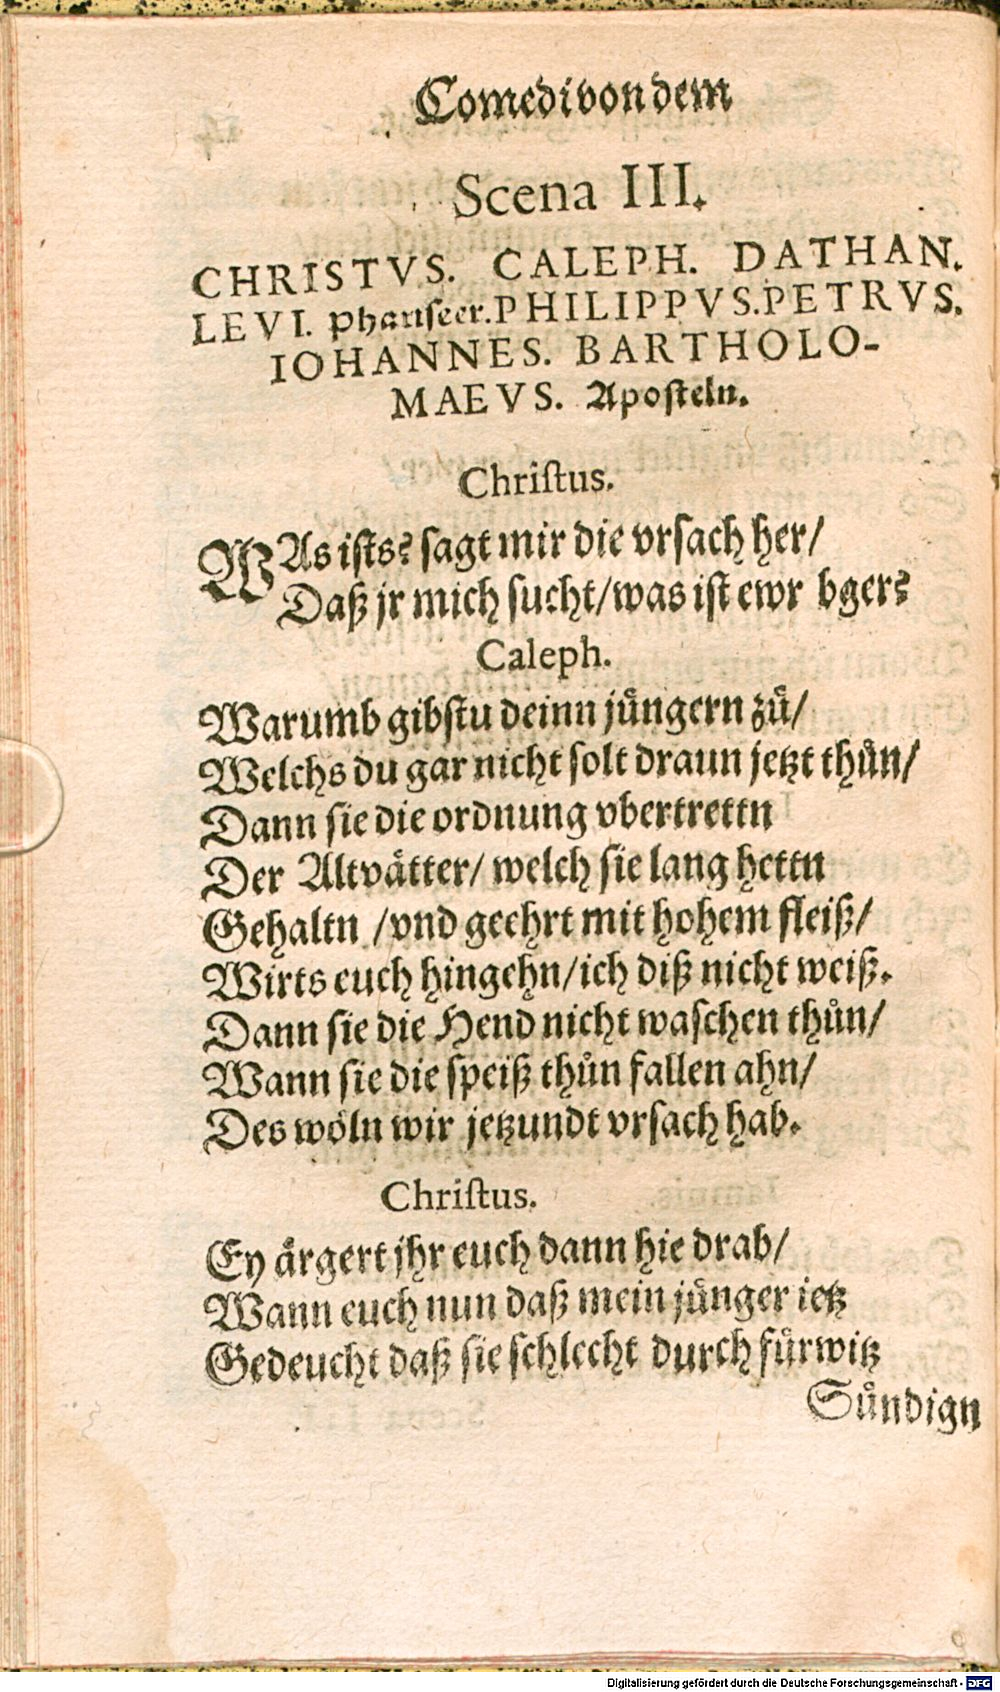 Comedi von dem
Scena III.
CHRISTVS. CALEPH. DATHAN.
LEVI. Phariseer. PHILIPPVS. PETRVS.
IOHANNES. BARTHOLO-
MAEVS. Aposteln.
Chriſtus.
WAs iſts? ſagt mir die vrſach her/
Daß jr mich ſucht/was iſt ewr bger?
Caleph.
Warumb gibſtu deinn juͤngern zuͤ/
Welchs du gar nicht ſolt draun jetzt thuͤn/
Dann ſie die ordnung vbertrettn
Der Altvaͤtter/ welch ſie lang hettn
Gehaltn /vnd geehrt mit hohem fleiß/
Wirts euch hingehn/ich diß nicht weiß.
Dann ſie die Hend nicht waſchen thuͤn/
Wann ſie die ſpeiß thuͤn fallen ahn/
Des woͤln wir jetzundt vrſach hab.
Chriſtus.
Ey aͤrgert jhr euch dann hie drab/
Wann euch nun daß mein juͤnger ietz
Gedeucht daß ſie ſchlecht durch fuͤrwitz
Suͤndign
Digitalisierung gefördert durch die Deutsche Forschungsgemeinschaft - DFG